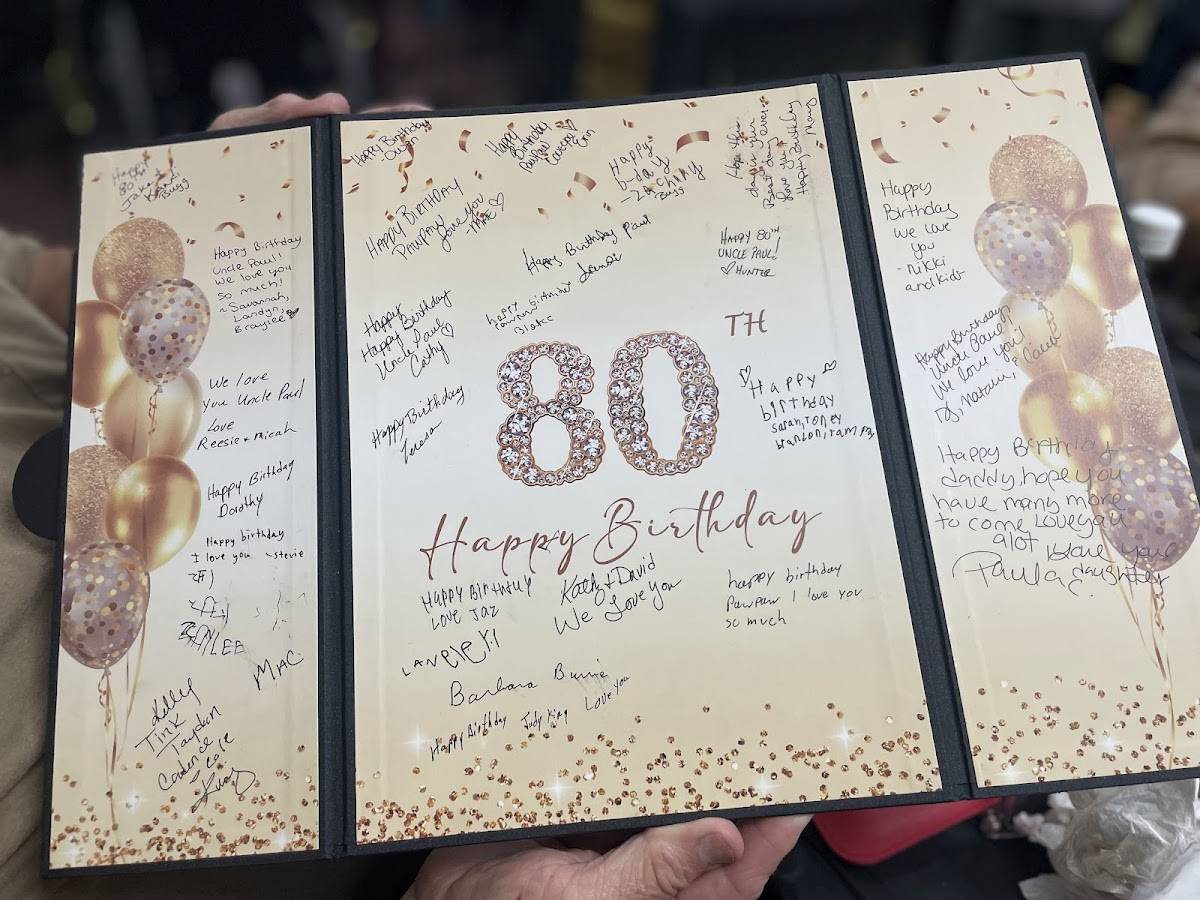 Happy
80th
Bugg
Happy Birthday
Uncle Paul!
We love you
so much!
~Savannah,
Landyn,
Braylee
We love
You Uncle Paul
Love
Reesie + Micah
Happy Birthday
Dorothy
Happy birthday
I love you ~Stevie
MAC
Kelly
Tink
Tayden
Cole
King
Happy Birthday
Happy Birthday
PawPaw
Happy
b-day
-Zachary
Bugg
Hope this
day is your
Best day ever
love you
Happy Birthday
Mary
Happy Birthday
Pawpaw
love you
-Mae
Happy Birthday Paul
Happy 80th
Uncle Paul!
Hunter
Happy
Happy Birthday
Uncle Paul
Cathy
happy birthday
Blake
TH
80
Happy Birthday
Happy
birthday
Sarah, Toney
Happy Birthday
Happy Birthday
Love Jaz
Kathy + David
We Love You
happy birthday
Pawpaw I love you
so much
Barbara
Happy Birthday Judy King Love you
Happy
Birthday
We love
you
- Nikki
and kids
Happy Birthday
Uncle Paul
We love you!
Happy Birthday
daddy, hope you
have many more
to come Love you
alot
your
Paula daughter